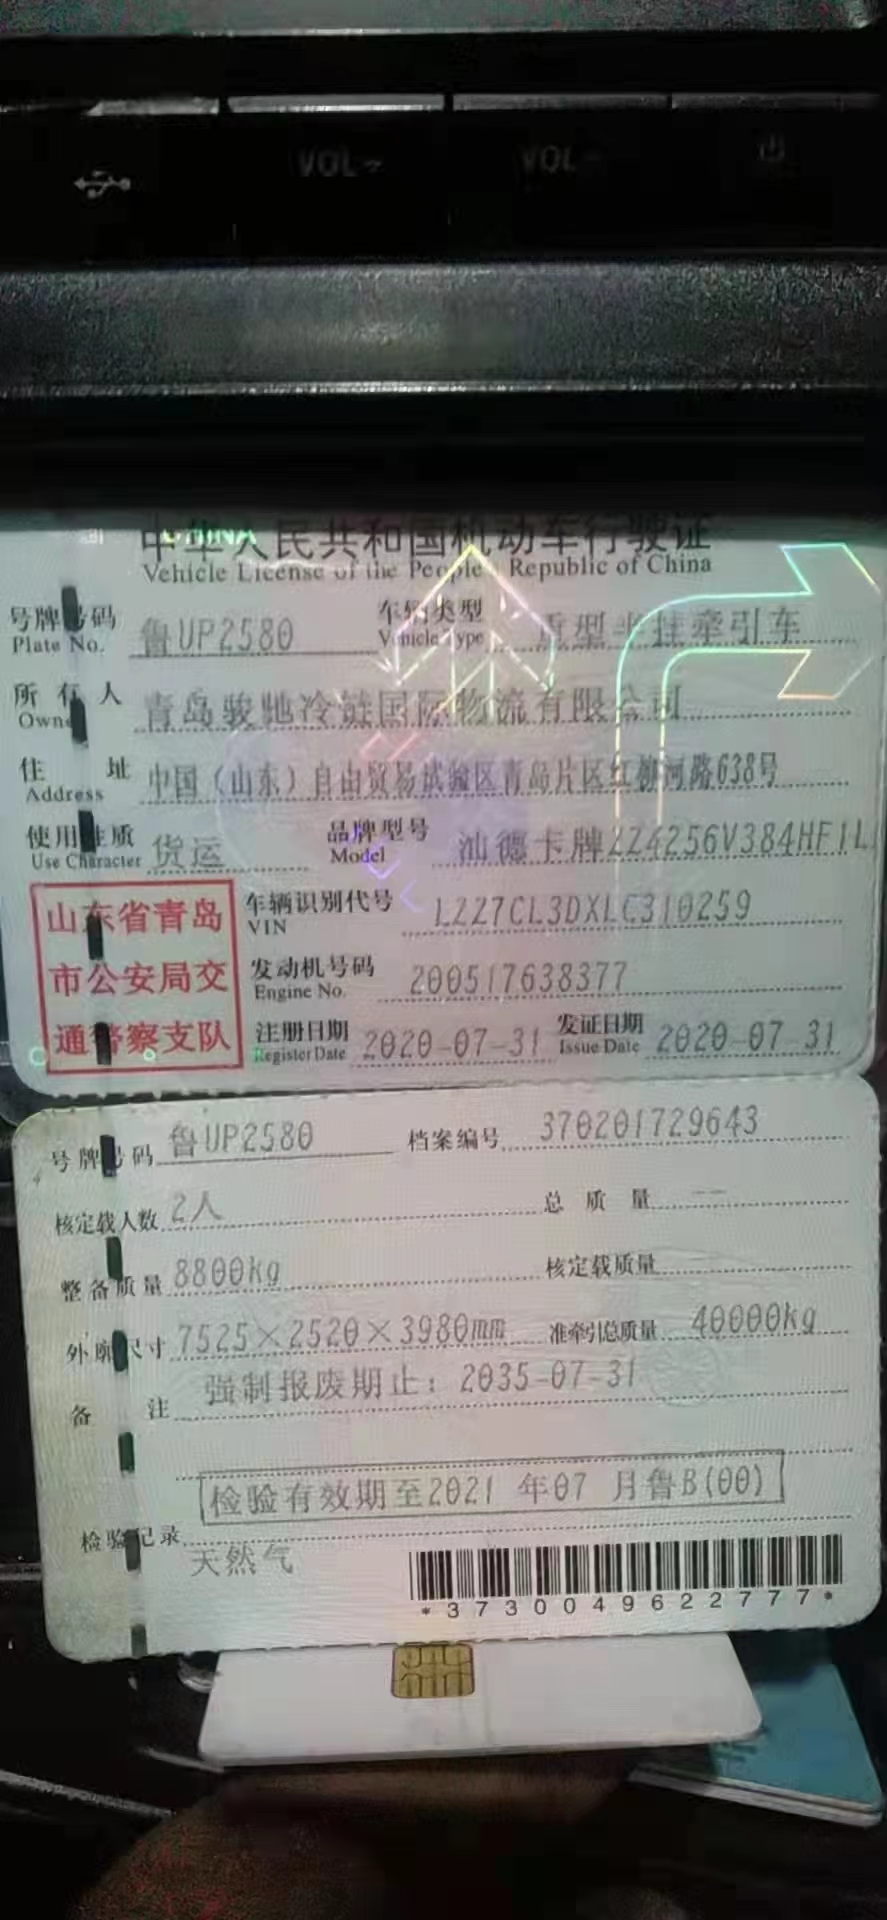 VOL-
VOL-
CHINA
中华人民共和国机动车行驶证
Vehicle License of the People's Republic of China
号牌号码 鲁UP2580 车辆类型 重型半挂牵引车
Plate No. Vehicle Type
所有人 青岛骏驰冷链国际物流有限公司
Owner
住址 中国(山东)自由贸易试验区青岛片区红柳河路638号
Address
使用性质 货运 品牌型号 汕德卡牌ZZ4256V384HF1L
Use Character Model
山东省青岛
市公安局交
通警察支队
车辆识别代号 LZZ7CL3DXLC310259
VIN
发动机号码 200517638377
Engine No.
注册日期 2020-07-31 发证日期 2020-07-31
Register Date Issue Date
号牌号码 鲁UP2580 档案编号 370201729643
核定载人数 2人 总质量 --
整备质量 8800kg 核定载质量
外廓尺寸 7525×2520×3980mm 准牵引总质量 40000kg
备注 强制报废期止：2035-07-31
检验有效期至2021 年07 月鲁B(00)
检验记录
天然气
*3730049622777*